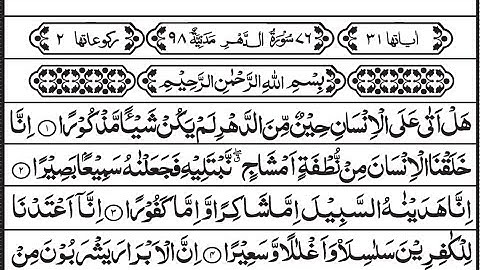 اٰیاتها ۳۱ ۷۶ سُوۡرَةُ الدَّهۡرِ مَدَنِيَّةٌ ۹۸ رکوعاتها ۲
بِسۡمِ اللّٰهِ الرَّحۡمٰنِ الرَّحِيۡمِ
هَلۡ اَتٰى عَلَى الۡاِنۡسَانِ حِيۡنٌ مِّنَ الدَّهۡرِ لَمۡ يَكُنۡ شَيۡـًٔا مَّذۡكُوۡرًا ۱ اِنَّا
خَلَقۡنَا الۡاِنۡسَانَ مِنۡ نُّطۡفَةٍ اَمۡشَاجٍ ۖ نَّبۡتَلِيۡهِ فَجَعَلۡنٰهُ سَمِيۡعًۢا بَصِيۡرًا ۲
اِنَّا هَدَيۡنٰهُ السَّبِيۡلَ اِمَّا شَاكِرًا وَّاِمَّا كَفُوۡرًا ۳ اِنَّاۤ اَعۡتَدۡنَا
لِلۡكٰفِرِيۡنَ سَلٰسِلَا۟ وَاَغۡلٰلًا وَّسَعِيۡرًا ۴ اِنَّ الۡاَبۡرَارَ يَشۡرَبُوۡنَ مِنۡ